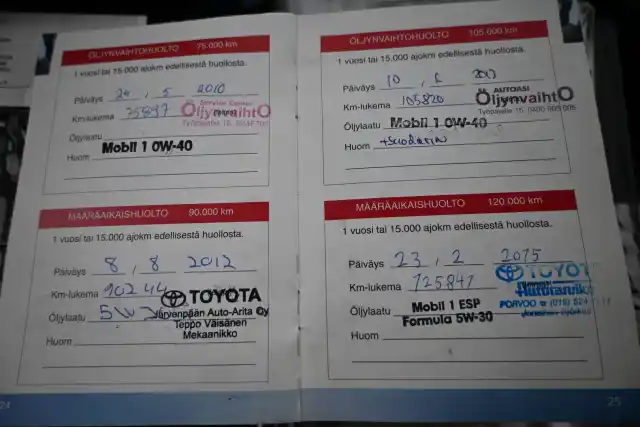 ÖLJYNVAIHTOHUOLTO 75.000 km
1 vuosi tai 15.000 ajokm edellisestä huollosta.
Päiväys 24 , 5 2010
Km-lukema 75897
ÖljyvaihtO
Öljylaatu
Mobil 1 0W-40
Huom
MÄÄRÄAIKAISHUOLTO 90.000 km
1 vuosi tai 15.000 ajokm edellisestä huollosta.
Päiväys 8 , 8 2012
Km-lukema 90244
TOYOTA
Öljylaatu 5W
Järvenpään Auto-Arita Oy
Teppo Väisänen
Mekaanikko
Huom
24
ÖLJYNVAIHTOHUOLTO 105.000 km
1 vuosi tai 15.000 ajokm edellisestä huollosta.
Päiväys 10 ,
AUTOASI
Km-lukema 105820
ÖljynvaihtO
Öljylaatu Mobil 1 0W-40
Huom +Suodatin
MÄÄRÄAIKAISHUOLTO 120.000 km
1 vuosi tai 15.000 ajokm edellisestä huollosta.
Päiväys 23 , 2 2015
Km-lukema 125847
TOYOT
PORVOO ☎ (019) 524
Öljylaatu Mobil 1 ESP
Formula 5W-30
Huom
25